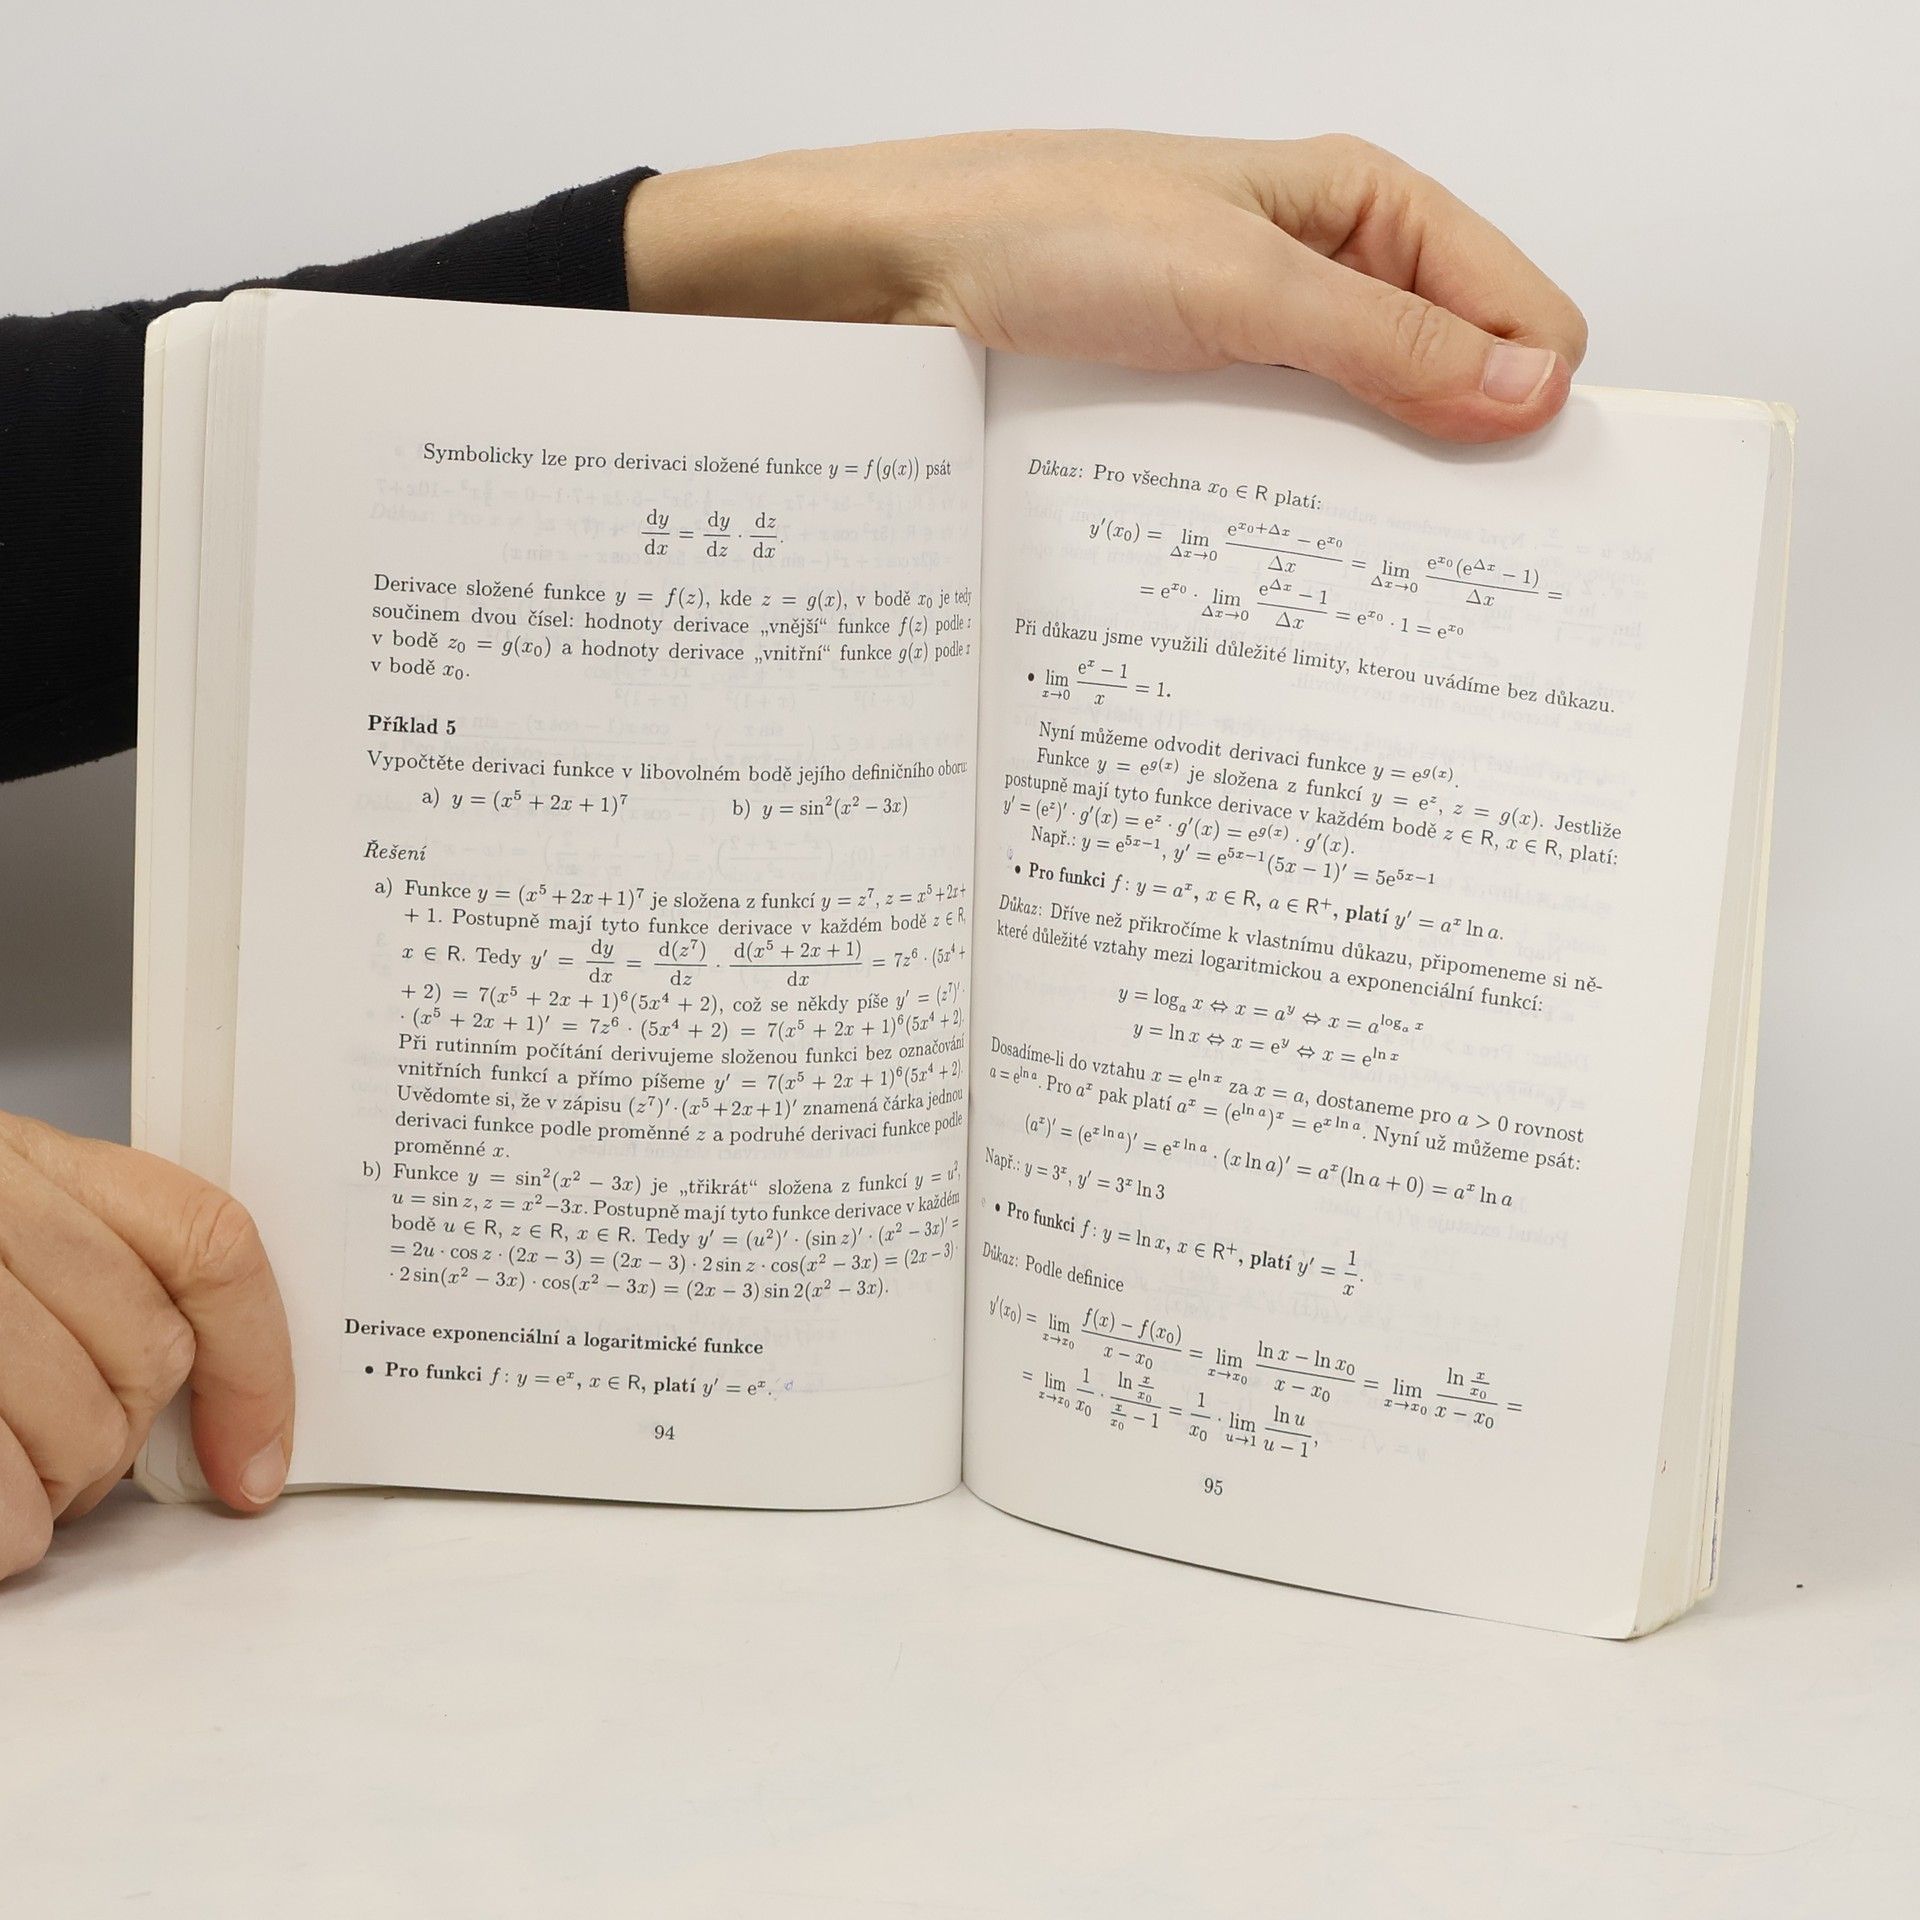 Symbolicky lze pro derivaci složené funkce y = f(g(x)) psát
dy/dx = dy/dz · dz/dx.
Derivace složené funkce y = f(z), kde z = g(x), v bodě x₀ je tedy
součinem dvou čísel: hodnoty derivace „vnější“ funkce f(z) podle z
v bodě z₀ = g(x₀) a hodnoty derivace „vnitřní“ funkce g(x) podle
v bodě x₀.
Příklad 5
Vypočtěte derivaci funkce v libovolném bodě jejího definičního oboru
a) y = (x⁵ + 2x + 1)⁷ b) y = sin²(x² − 3x)
Řešení
a) Funkce y = (x⁵ + 2x + 1)⁷ je složena z funkcí y = z⁷, z = x⁵ + 2x +
+ 1. Postupně mají tyto funkce derivace v každém bodě z ∈ R,
x ∈ R. Tedy y′ = dy/dx = d(z⁷)/dz · d(x⁵ + 2x + 1)/dx = 7z⁶ · (5x⁴ +
+ 2) = 7(x⁵ + 2x + 1)⁶(5x⁴ + 2), což se někdy píše y′ = (z⁷)′ ·
· (x⁵ + 2x + 1)′ = 7z⁶ · (5x⁴ + 2) = 7(x⁵ + 2x + 1)⁶(5x⁴ + 2).
Při rutinním počítání derivujeme složenou funkci bez označování
vnitřních funkcí a přímo píšeme y′ = 7(x⁵ + 2x + 1)⁶(5x⁴ + 2).
Uvědomte si, že v zápisu (z⁷)′ · (x⁵ + 2x + 1)′ znamená čárka jednou
derivaci funkce podle proměnné z a podruhé derivaci funkce podle
proměnné x.
b) Funkce y = sin²(x² − 3x) je „třikrát“ složena z funkcí y = u²,
u = sin z, z = x² − 3x. Postupně mají tyto funkce derivace v každém
bodě u ∈ R, z ∈ R, x ∈ R. Tedy y′ = (u²)′ · (sin z)′ · (x² − 3x)′ =
= 2u · cos z · (2x − 3) = (2x − 3) · 2 sin z · cos(x² − 3x) = (2x − 3) ·
· 2 sin(x² − 3x) · cos(x² − 3x) = (2x − 3) sin 2(x² − 3x).
Derivace exponenciální a logaritmické funkce
• Pro funkci f : y = eˣ, x ∈ R, platí y′ = eˣ.
94
Důkaz: Pro všechna x₀ ∈ R platí:
y′(x₀) = lim_{Δx→0} (e^{x₀+Δx} − e^{x₀})/Δx = lim_{Δx→0} e^{x₀}(e^{Δx} − 1)/Δx =
= e^{x₀} · lim_{Δx→0} (e^{Δx} − 1)/Δx = e^{x₀} · 1 = e^{x₀}
Při důkazu jsme využili důležité limity, kterou uvádíme bez důkazu.
• lim_{x→0} (eˣ − 1)/x = 1.
Nyní můžeme odvodit derivaci funkce y = e^{g(x)}.
Funkce y = e^{g(x)} je složena z funkcí y = e^z, z = g(x). Jestliže
postupně mají tyto funkce derivace v každém bodě z ∈ R, x ∈ R, platí:
y′ = (e^z)′ · g′(x) = e^z · g′(x) = e^{g(x)} · g′(x).
Např.: y = e^{5x−1}, y′ = e^{5x−1}(5x − 1)′ = 5e^{5x−1}
• Pro funkci f : y = aˣ, x ∈ R, a ∈ R⁺, platí y′ = aˣ ln a.
Důkaz: Dříve než přikročíme k vlastnímu důkazu, připomeneme si ně-
které důležité vztahy mezi logaritmickou a exponenciální funkcí:
y = logₐ x ⇔ x = a^y ⇔ x = a^{logₐ x}
y = ln x ⇔ x = e^y ⇔ x = e^{ln x}
Dosadíme-li do vztahu x = e^{ln x} za x = a, dostaneme pro a > 0 rovnost
a = e^{ln a}. Pro aˣ pak platí aˣ = (e^{ln a})ˣ = e^{x ln a}. Nyní už můžeme psát:
(aˣ)′ = (e^{x ln a})′ = e^{x ln a} · (x ln a)′ = aˣ(ln a + 0) = aˣ ln a
Např.: y = 3ˣ, y′ = 3ˣ ln 3
• Pro funkci f : y = ln x, x ∈ R⁺, platí y′ = 1/x.
Důkaz: Podle definice
y′(x₀) = lim_{x→x₀} (f(x) − f(x₀))/(x − x₀) = lim_{x→x₀} (ln x − ln x₀)/(x − x₀) = lim_{x→x₀} (ln x/x₀)/(x − x₀) =
= lim_{x→x₀} 1/x₀ · (ln x/x₀)/(x/x₀ − 1) = 1/x₀ · lim_{u→1} ln u/(u − 1),
95